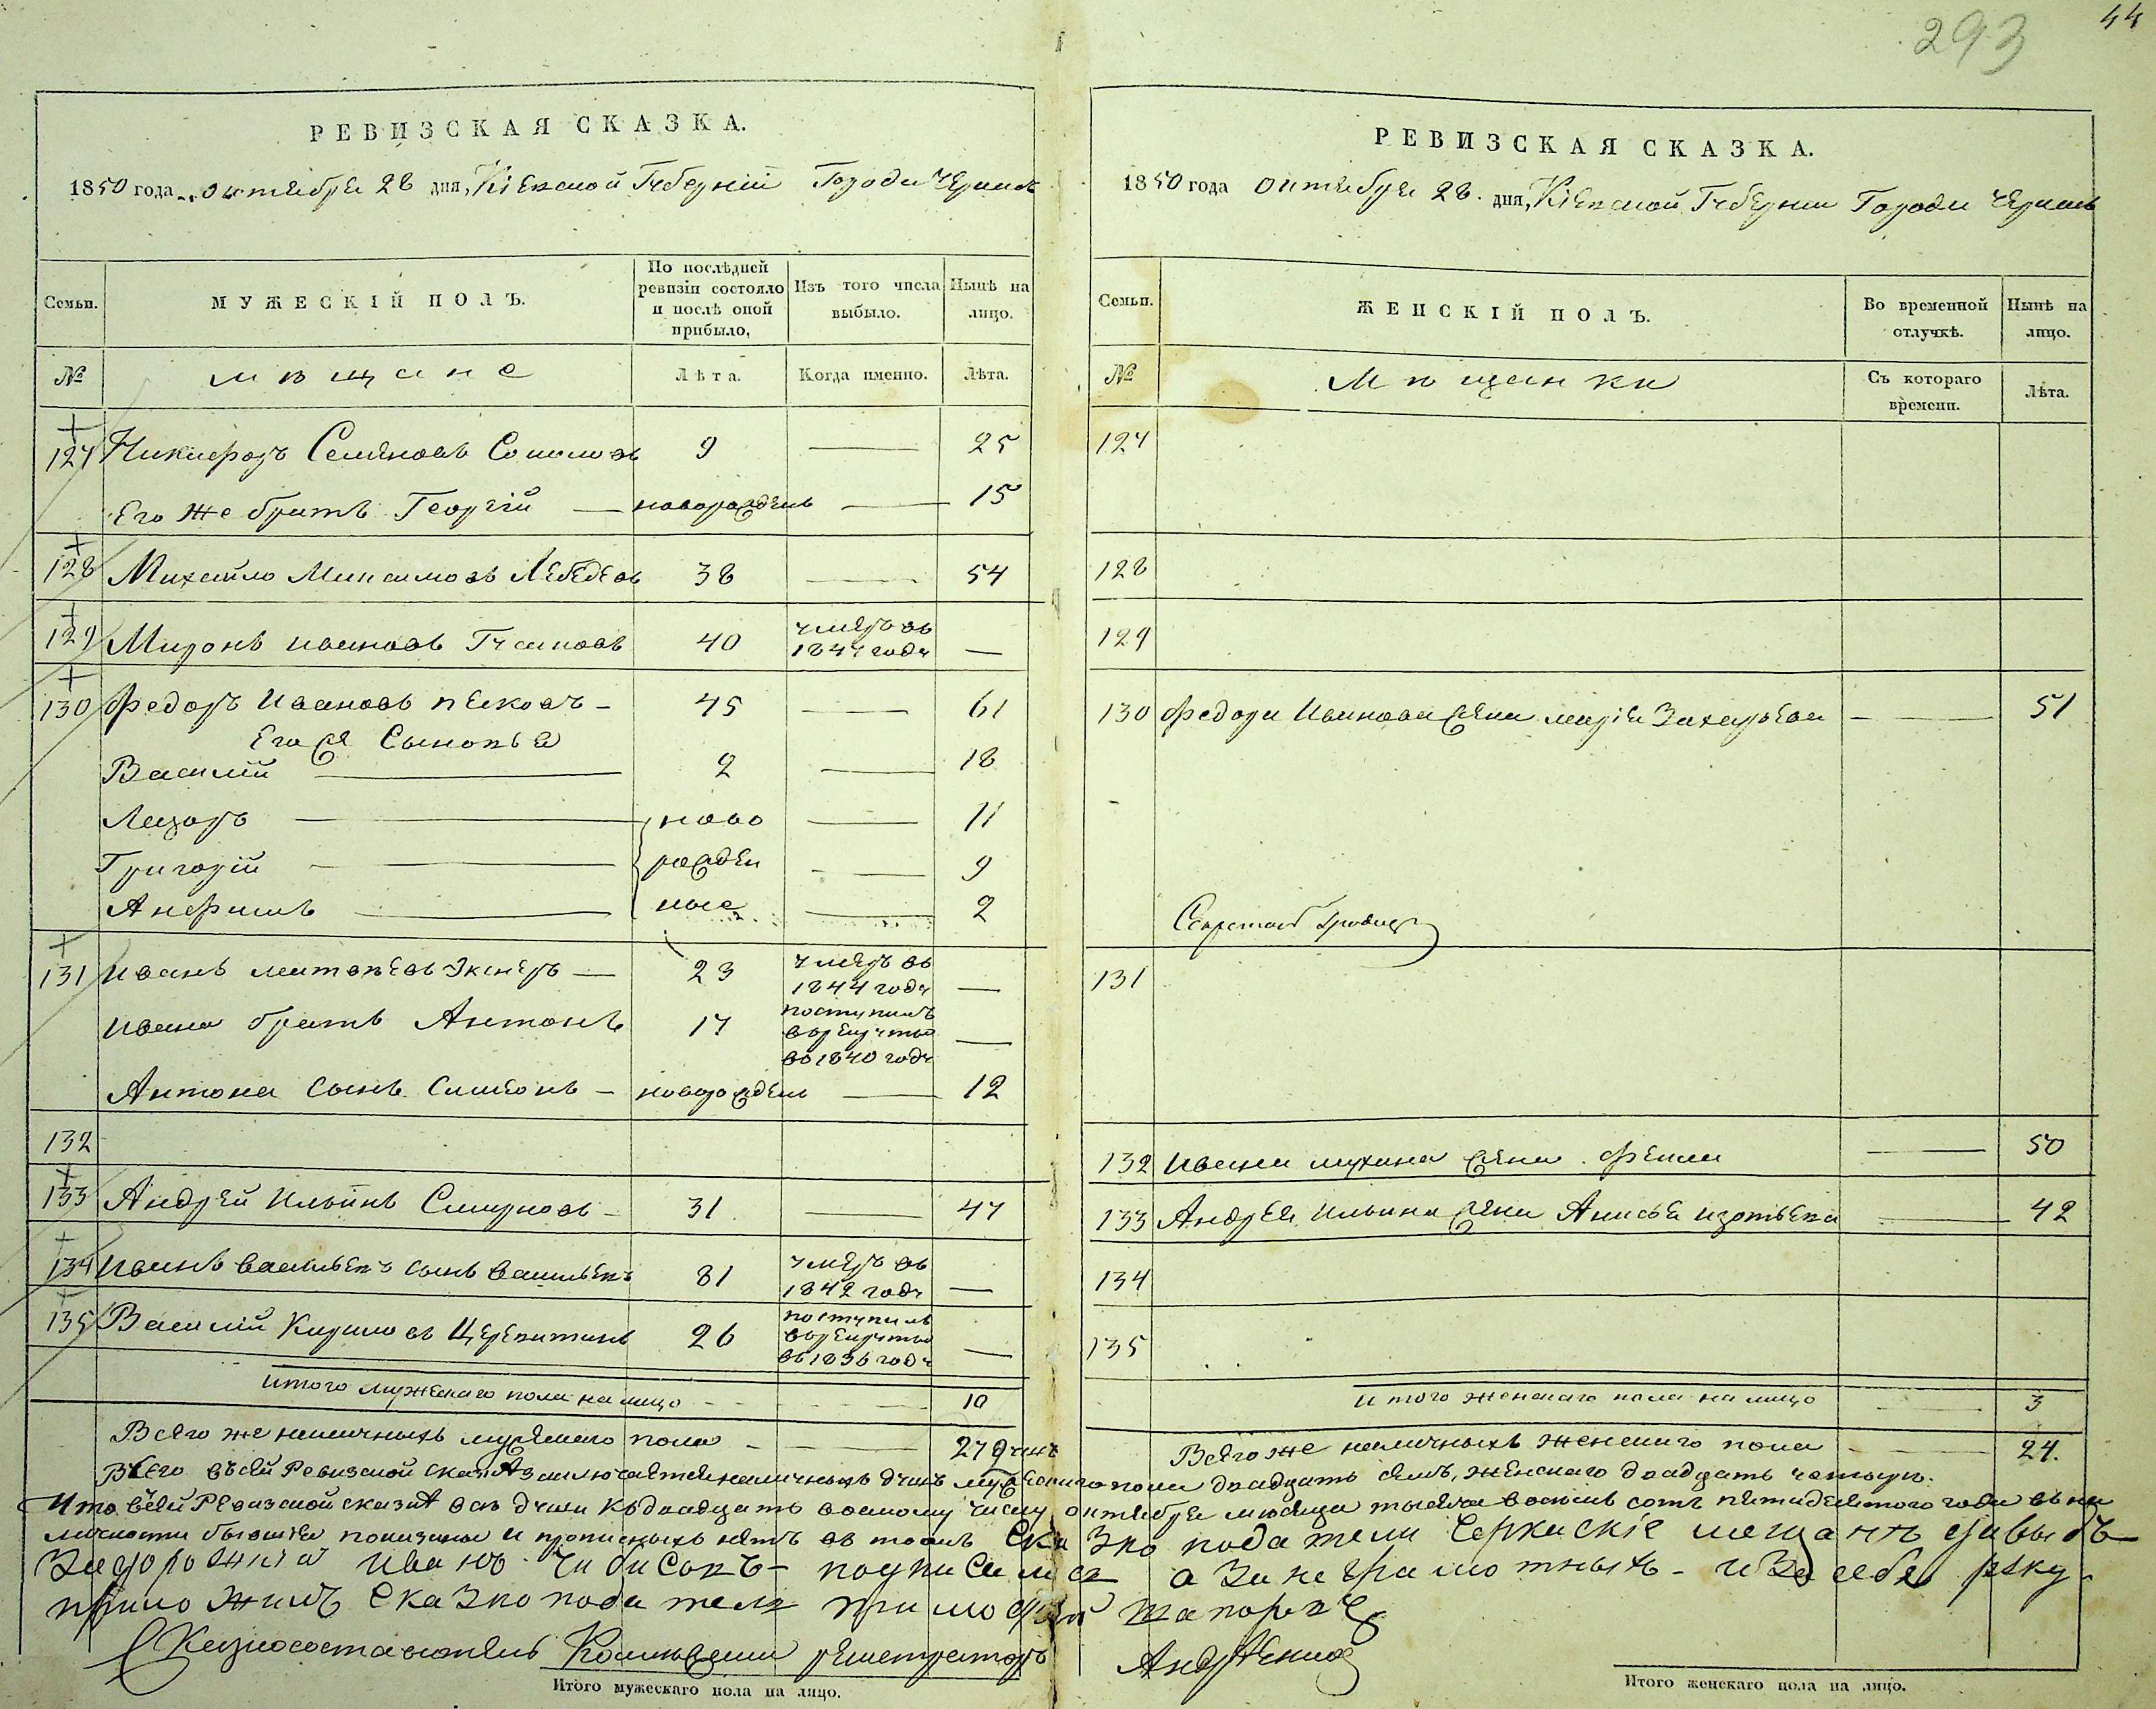 293
44
РЕВИЗСКАЯ СКАЗКА.
1850 года октября 28 дня, Кіевской Губерніи Города Черкасъ
Семьи.
МУЖЕСКІЙ ПОЛЪ.
По послѣдней ревизіи состояло и послѣ оной прибыло,
Изъ того числа выбыло.
Нынѣ на лицо.
№
мѣщане
Лѣта.
Когда именно.
Лѣта.
124 Никифоръ Семеновъ 9 — 25
Его же братъ Георгій — новорожденъ — 15
128 Михайло Максимовъ Лебедевъ 38 — 54
129 Миронъ Ивановъ 40 умеръ въ 1844 году —
130 Федоръ Ивановъ 45 — 61
Его же Сыновья
Василій — 2 — 18
Лазарь — ново — 11
Григорій — рожден — 9
Анфимъ — ные — 2
131 Иванъ — 23 умеръ въ 1844 году —
Ивана братъ Антонъ 17 поступилъ въ рекруты въ 1840 году —
Антона сынъ Симеонъ — новорожденъ — 12
132
133 Андрей Ильинъ Смирновъ — 31 — 47
134 Иванъ Васильевъ сынъ Васильевъ 81 умеръ въ 1842 году —
135 Василій Кириловъ 26 поступилъ въ рекруты въ 1836 году —
Итого мужескаго пола на лицо 10
Всего же наличныхъ мужескаго пола — 27 душъ
РЕВИЗСКАЯ СКАЗКА.
1850 года октября 28 дня, Кіевской Губерніи Города Черкасъ
Семьи.
ЖЕНСКІЙ ПОЛЪ.
Во временной отлучкѣ.
Нынѣ на лицо.
№
Мѣщанки
Съ котораго времени.
Лѣта.
124
128
129
130 Федора Иванова жена Марія Захарьева — 51
Секретарь
131
132 Ивана жена — 50
133 Андрея Ильина жена Анисья Изотьева — 42
134
135
Итого женскаго пола на лицо — 3
Всего же наличныхъ женскаго пола — 24.
Всего въ сей Ревизской сказкѣ заключается наличныхъ душъ мужескаго пола двадцать семь, женскаго двадцать четыре.
Что въ сей Ревизской сказкѣ всѣ души къ двадцать восьмому числу октября мѣсяца тысяча восемь сотъ пятидесятого года въ на
личности бывшія показаны и прописныхъ нѣтъ въ томъ Сказко податели Черкаскіе мещане
Иванъ подписался а за неграмотныхъ и за себя руку
приложилъ Сказко податель
Сказкосоставитель регистраторъ
Итого мужескаго пола на лицо.
Итого женскаго пола на лицо.